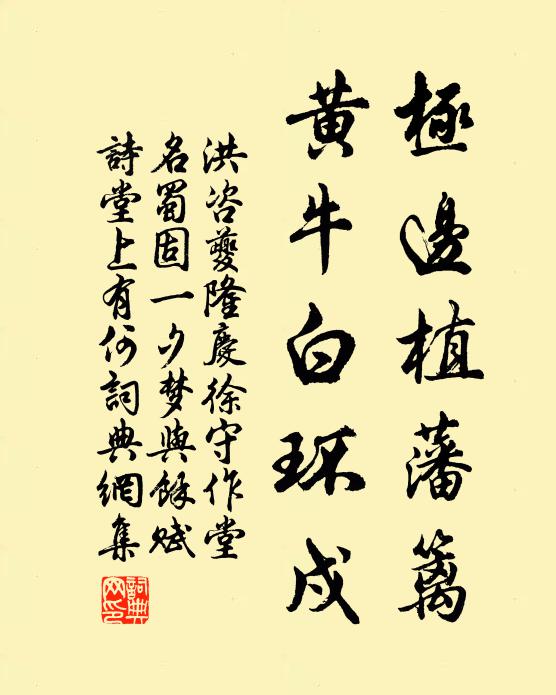 極邊植藩籬
黃牛白環戍
洪咨夔隆慶徐守作堂
名蜀固一夕夢與餘賦
詩堂上有何詞典網集
詞典網印